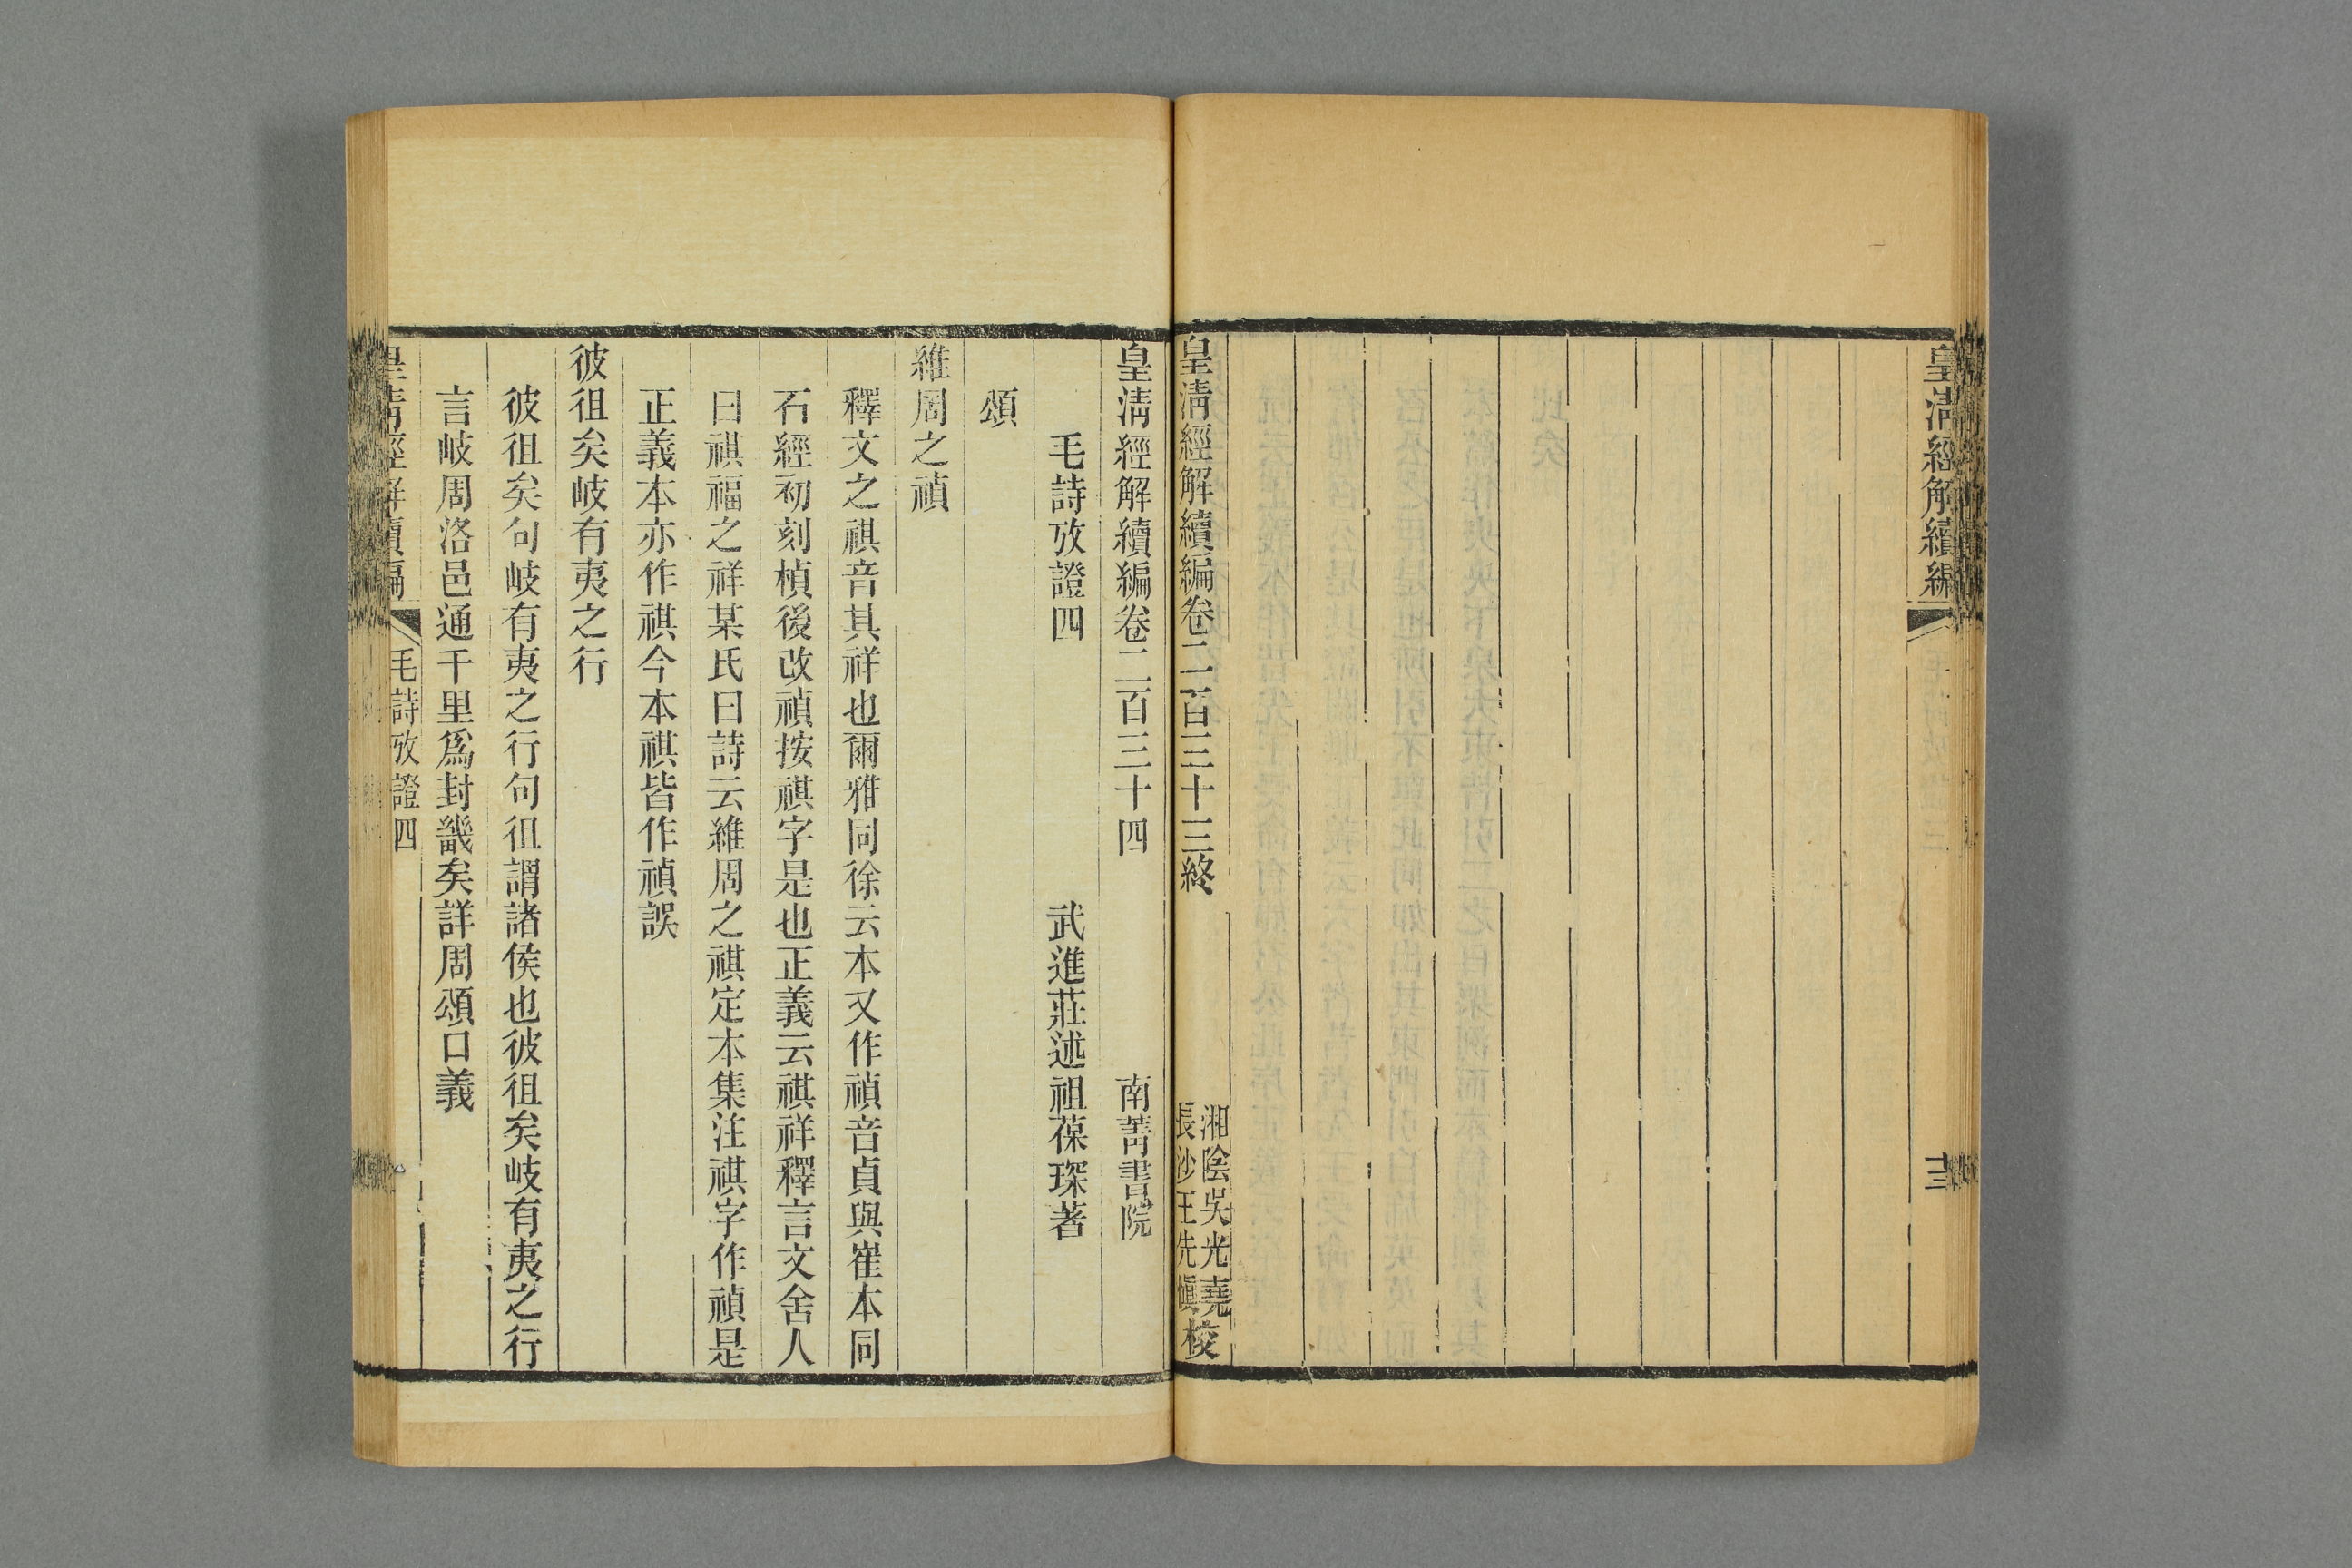 皇淸經解續編
十三
皇淸經解續編卷二百三十三終
湘陰吳光堯
長沙王先愼
校
皇淸經解續編卷二百三十四
南菁書院
毛詩攷證四
武進莊述祖葆琛著
頌
維周之禎
釋文之祺音其祥也爾雅同徐云本又作禎音貞與崔本同
石經初刻楨後改禎按祺字是也正義云祺祥釋言文舍人
曰祺福之祥某氏曰詩云維周之祺定本集注祺字作禎是
正義本亦作祺今本祺皆作禎誤
彼徂矣岐有夷之行
彼徂矣句岐有夷之行句徂謂諸侯也彼徂矣岐有夷之行
言岐周洛邑通千里爲封畿矣詳周頌口義
皇淸經解續編
毛詩攷證四